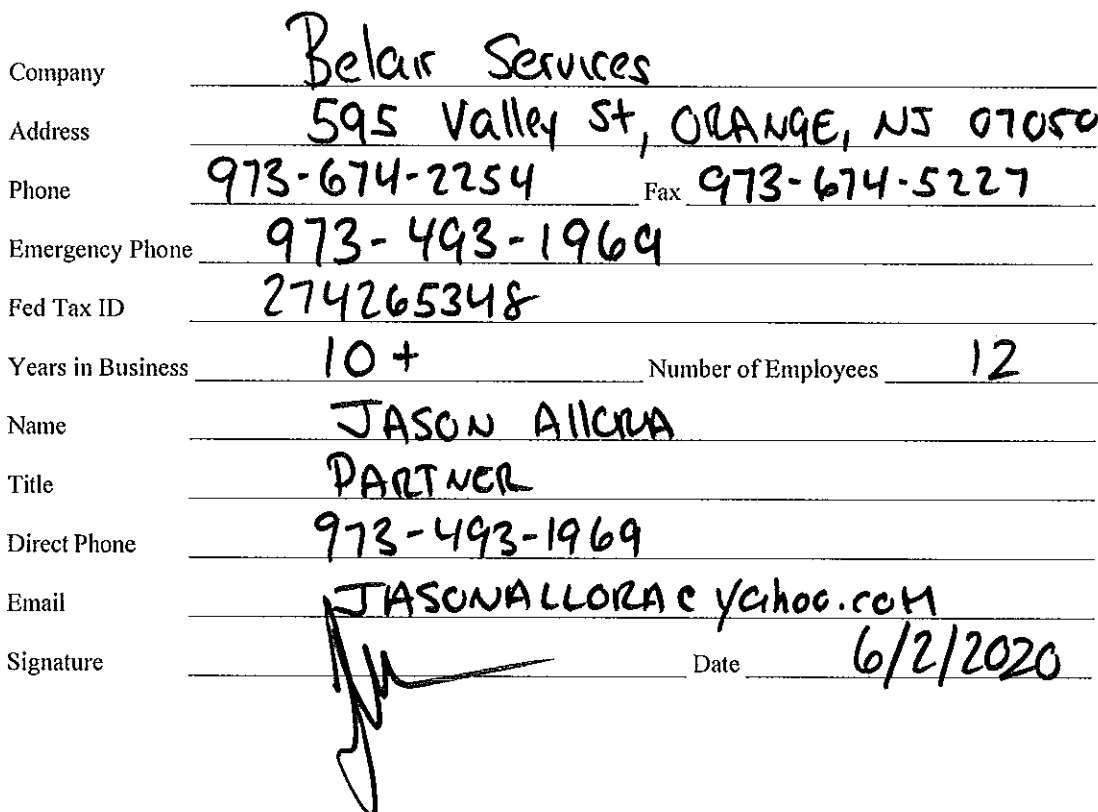 Company Belair Services
Address 595 Valley St, ORANGE, NJ 07050
Phone 973-674-2254 Fax 973-674-5227
Emergency Phone 973-493-1969
Fed Tax ID 274265348
Years in Business 10+ Number of Employees 12
Name JASON Allora
Title PARTNER
Direct Phone 973-493-1969
Email JASONALLORA@yahoo.com
Signature Date 6/2/2020